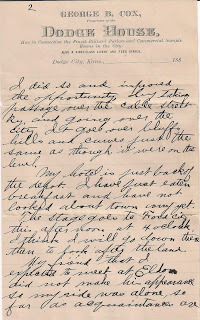 2
GEORGE B. COX,
PROPRIETOR OF THE
DODGE HOUSE,
Has in Connection the Finest Billiard Parlors and Commercial Sample
Rooms in the City.
ALSO A FIRST-CLASS LIVERY AND FEED STABLE.
Dodge City, Kans., 188
I did so and improved
the opportunity by taking
passage over the cable street
Ry. and going over the
city. It goes over bluffs
hills and curves just the
same as though it were on the
level.
My hotel is just back of
the depot. I have just eaten
breakfast and have not
looked about town any yet.
The stage goes to
this afternoon at 4 oclock.
I think I will go down there
then to look up the land.
My friend that I
expected to meet at Eldon
did not make his appearance
so my ride was alone so
far as acquaintances are